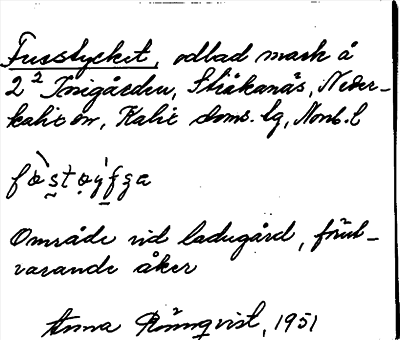 Fusstycket, odlad mark å
2² Inigården, Stråkanäs, Neder-
kalix sn, Kalix doms. lg, Norrb. l
Område vid ladugård, förut-
varande åker
Anna Rönnqvist, 1951